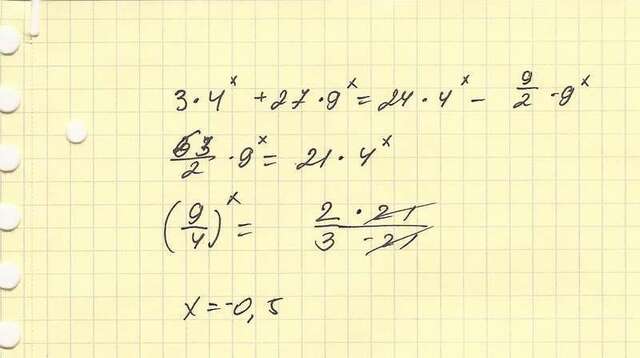 3 · 4^x + 27 · 9^x = 24 · 4^x - 9/2 · 9^x
63/2 · 9^x = 21 · 4^x
(9/4)^x = 2 · 21 / 3 · 21
x = -0,5